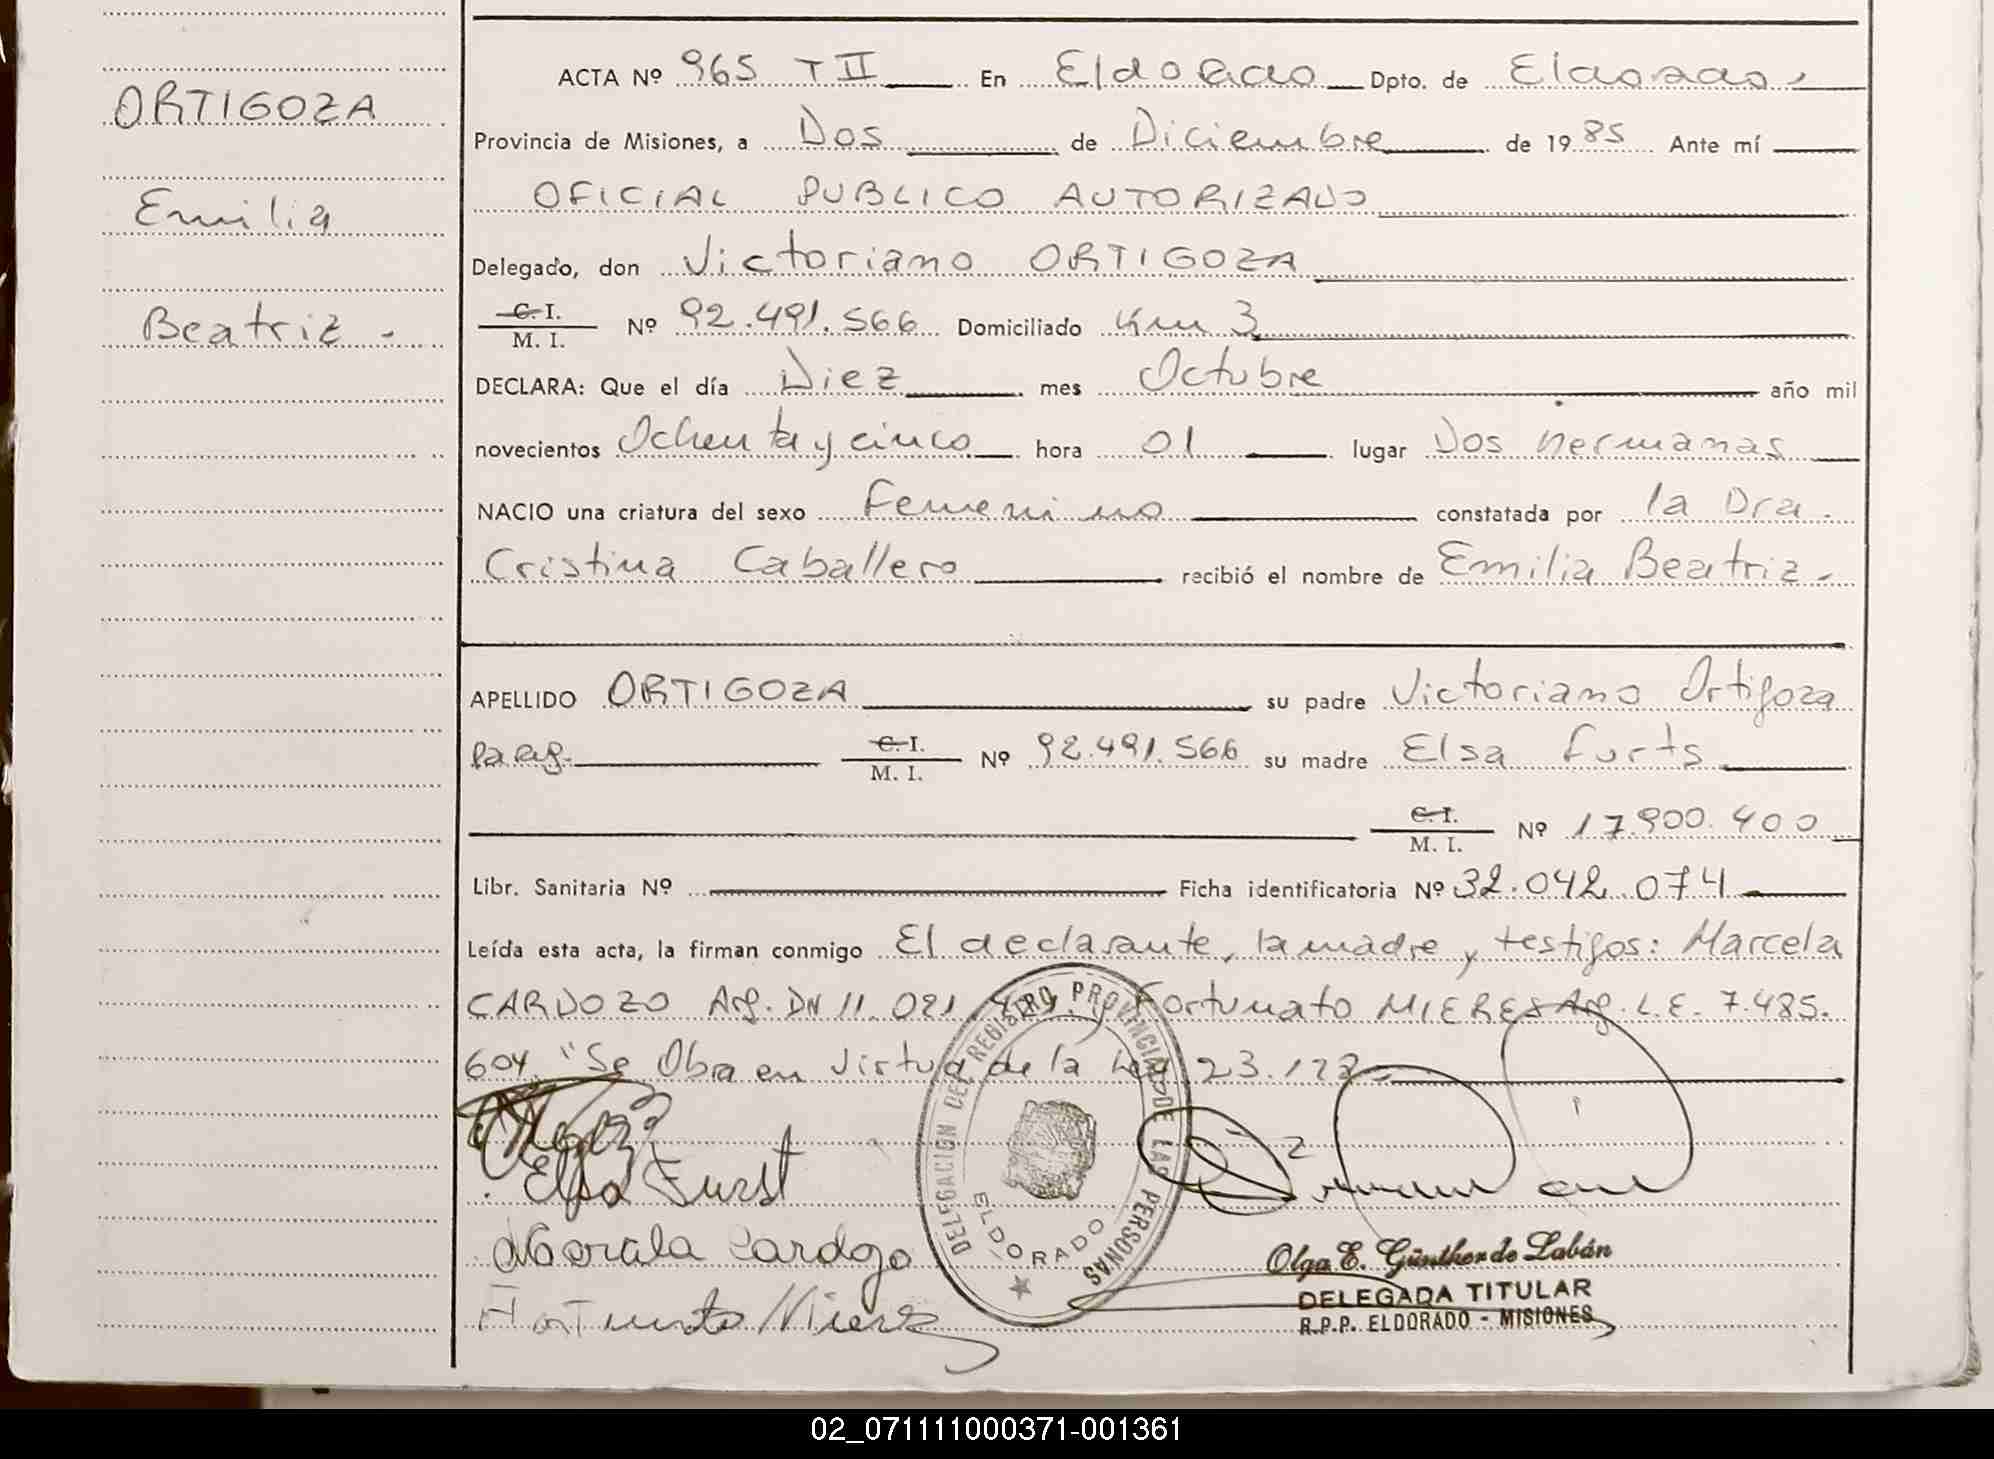 ORTIGOZA
Emilia
Beatriz -
ACTA Nº 965 T II En Eldorado Dpto. de Eldorado.
Provincia de Misiones, a Dos de Diciembre de 1985 Ante mí
OFICIAL PUBLICO AUTORIZADO
Delegado, don Victoriano ORTIGOZA
C. I.
M. I. Nº 92.491.566 Domiciliado Km 3
DECLARA: Que el día Diez mes Octubre año mil
novecientos Ochenta y cinco hora 01 lugar Dos Hermanas
NACIO una criatura del sexo Femenino constatada por la Dra.
Cristina Caballero recibió el nombre de Emilia Beatriz.
APELLIDO ORTIGOZA su padre Victoriano Ortigoza
Parag. C. I. M. I. Nº 92.491.566 su madre Elsa Furts
C. I.
M. I. Nº 17.900.400
Libr. Sanitaria Nº Ficha identificatoria Nº 32.042.074
Leída esta acta, la firman conmigo El declarante, la madre y testigos: Marcela
CARDOZO Arg. DN 11.021. y Fortunato MIERES Arg. L.E. 7.485.
604. "Se Obra en Virtud de la Ley 23.
Elsa Furst
Marcela Cardozo
Fortunato Mieres
DELEGACION DEL REGISTRO PROVINCIAL DE LAS PERSONAS
ELDORADO
Olga E. Günther de Labán
DELEGADA TITULAR
R.P.P. ELDORADO - MISIONES
02_071111000371-001361